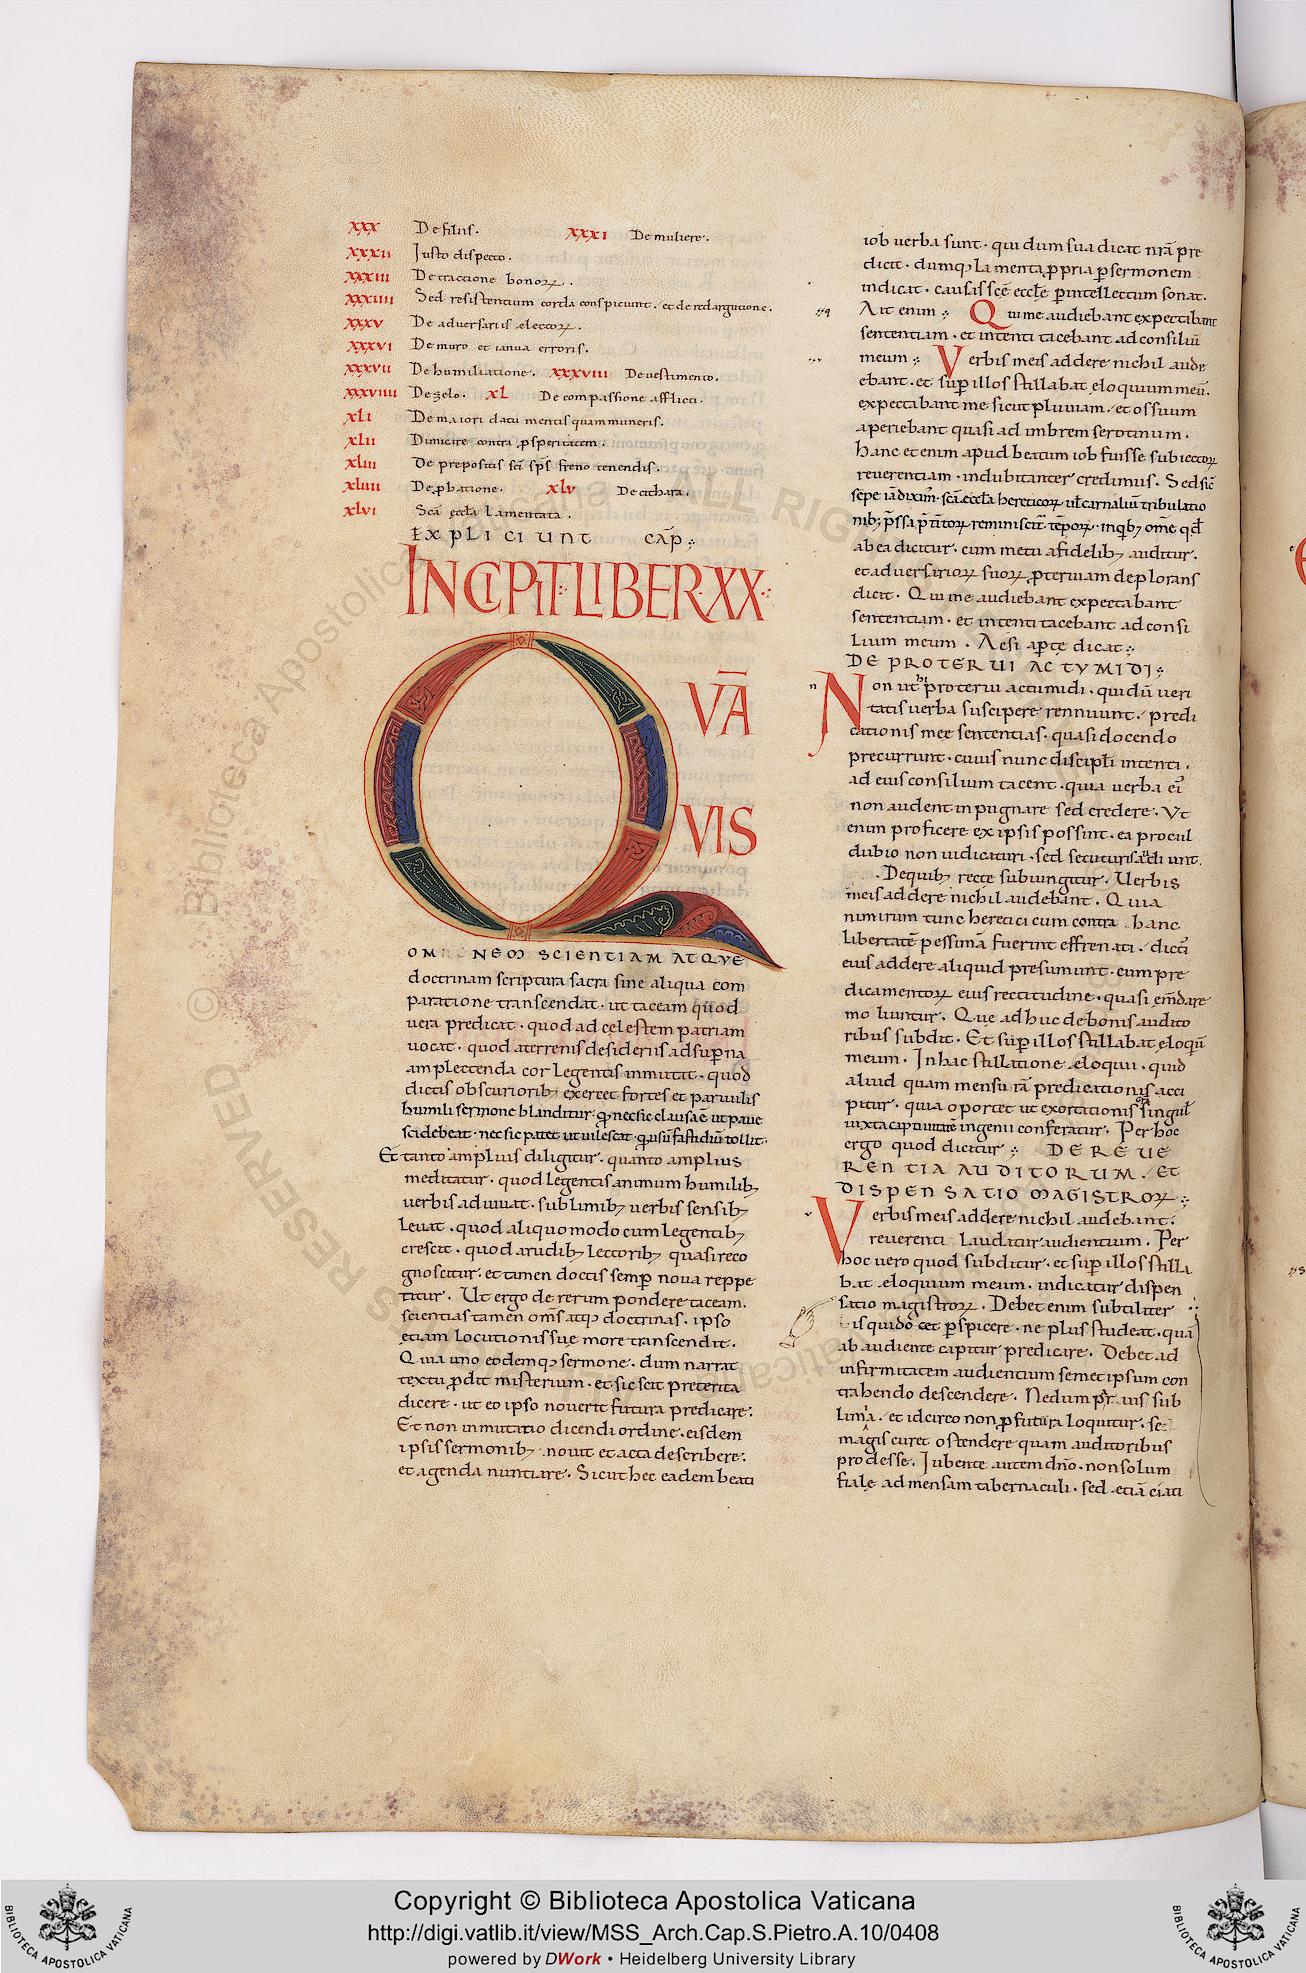 xxx De filiis. xxxi De muliere.
xxxii Justo dispecto.
xxxiii De traccione bonoꝝ.
xxxiiii Sed resistentium corda conspiciunt. et de redargutione.
xxxv De adversariis electoꝝ.
xxxvi De muro et ianua erroris.
xxxvii De humiliatione. xxxviii De vestimento.
xxxviiii De zelo. xl De compassione afflicti.
xli De maiori datu mentis quam muneris.
xlii Dimicare contra ꝓsperitatem.
xliii De prepositis sc̄i sp̄s freno tenendis.
xliiii De ꝓbatione. xlv De cithara.
xlvi Sc̄a eccła lamentata.
EXPLICIUNT CAP̄
INCIPIT LIBER XX
QVĀ
VIS
OMNEM SCIENTIAM ATQVE
doctrinam scriptura sacra sine aliqua com
paratione transcendat. ut taceam quod
vera predicat. quod ad celestem patriam
vocat. quod a terrenis desideriis ad suꝑna
amplectenda cor legentis inmutat. quod
dictis obscurioribꝫ exercet fortes et parvulis
humili sermone blanditur. qđ nec sic clausa ē ut pave
sci debeat. nec sic patet ut vilescat. qđ usu fastidiū tollit.
Et tanto amplius diligitur. quanto amplius
meditatur. quod legentis animum humilibꝫ
verbis adiuvat. sublimibꝫ verbis sensibꝫ
levat. quod aliquo modo cum legentibꝫ
crescit. quod a rudibꝫ lectoribꝫ quasi reco
gnoscitur. et tamen doctis semꝑ nova reppe
titur. Ut ergo de rerum pondere taceam.
scientias tamen om̄s atqꝫ doctrinas. ipso
etiam locutionis suę more transcendit.
Quia uno eodemqꝫ sermone. dum narrat
textu ꝓdit misterium. et sic scit preterita
dicere. ut eo ipso noverit futura predicare.
Et non inmutato dicendi ordine. eisdem
ipsis sermonibꝫ novit et acta describere.
et agenda nuntiare. Sicut hec eadem beati
iob verba sunt. qui dum sua dicat nr̄a pre
dicit. dumqꝫ lamenta ꝓpria ꝑ sermonem
indicat. causas sc̄ę eccłę ꝑ intellectum sonat.
Ait enim. Qui me audiebant expectabant
sententiam. et intenti tacebant ad consiliū
meum. Verbis meis addere nichil aude
ebant. et suꝑ illos stillabat eloquium meū.
expectabant me sicut pluviam. et os suum
aperiebant quasi ad imbrem serotinum.
Hanc etenim apud beatum iob fuisse subiectoꝝ
reverentiam. indubitanter credimus. Sed sic̄
sepe iā diximꝰ. sc̄a eccła hereticoꝝ vł carnaliū tribulatio
nibꝫ p̄ssa
ab ea dicitur. cum metu a fidelibꝫ auditur.
et adversarioꝝ suoꝝ ꝓterviam deplorans
dicit. Qui me audiebant expectabant
sententiam. et intenti tacebant ad consi
lium meum. Ac si aꝑte dicat.
DE PROTERUI AC TYMIDI
Non ut proterui ac tumidi. qui dū veri
tatis verba suscipere rennuunt. predi
cationis mee sententias. quasi docendo
precurrunt. cuius nunc discipłi intenti.
ad eius consilium tacent. quia verba eiꝰ
non audent inpugnare sed credere. Ut
enim proficere ex ipsis possint. ea procul
dubio non iudicaturi. sed secuturi audiunt.
De quibꝫ recte subiungitur. Verbis
meis addere nichil audebant. Quia
nimirum tunc heretici cum contra hanc
libertatē pessimā fuerint effrenati. dictis
eius addere aliquid presumunt. cum pre
dicamentoꝝ eius rectitudinē. quasi em̄dare
moliuntur. Que adhuc de bonis audito
ribus subdit. Et suꝑ illos stillabat eloqū
meum. In hac stillatione eloquii. quid
aliud quam mensurā predicationis acci
pitur. quia oportet ut exortationis singuł
iuxta captivitatē ingenii conferatur. Per hoc
ergo quod dicitur. DE REUE
RENTIA AUDITORUM. ET
DISPENSATIO MAGISTROꝜ.
Verbis meis addere nichil audebant.
reverenti laudatur audientium. Per
hoc vero quod subditur. et suꝑ illos stilla
bat eloquium meum. indicatur dispen
satio magistroꝝ. Debet enim subtiliter
is qui docet ꝑspicere. ne plus studeat. quā
ab audiente capitur predicare. Debet ad
infirmitatem audientium semet ipsum con
trahendo descendere. Ne dum parvis sub
limia. et idcirco non ꝓfutura loquitur. se
magis curet ostendere quam auditoribus
prodesse. Jubente autem dn̄o. non solum
fialę ad mensam tabernaculi. sed etiā ciati
Copyright © Biblioteca Apostolica Vaticana
http://digi.vatlib.it/view/MSS_Arch.Cap.S.Pietro.A.10/0408
powered by DWork • Heidelberg University Library
BIBLIOTECA APOSTOLICA VATICANA
BIBLIOTECA APOSTOLICA VATICANA